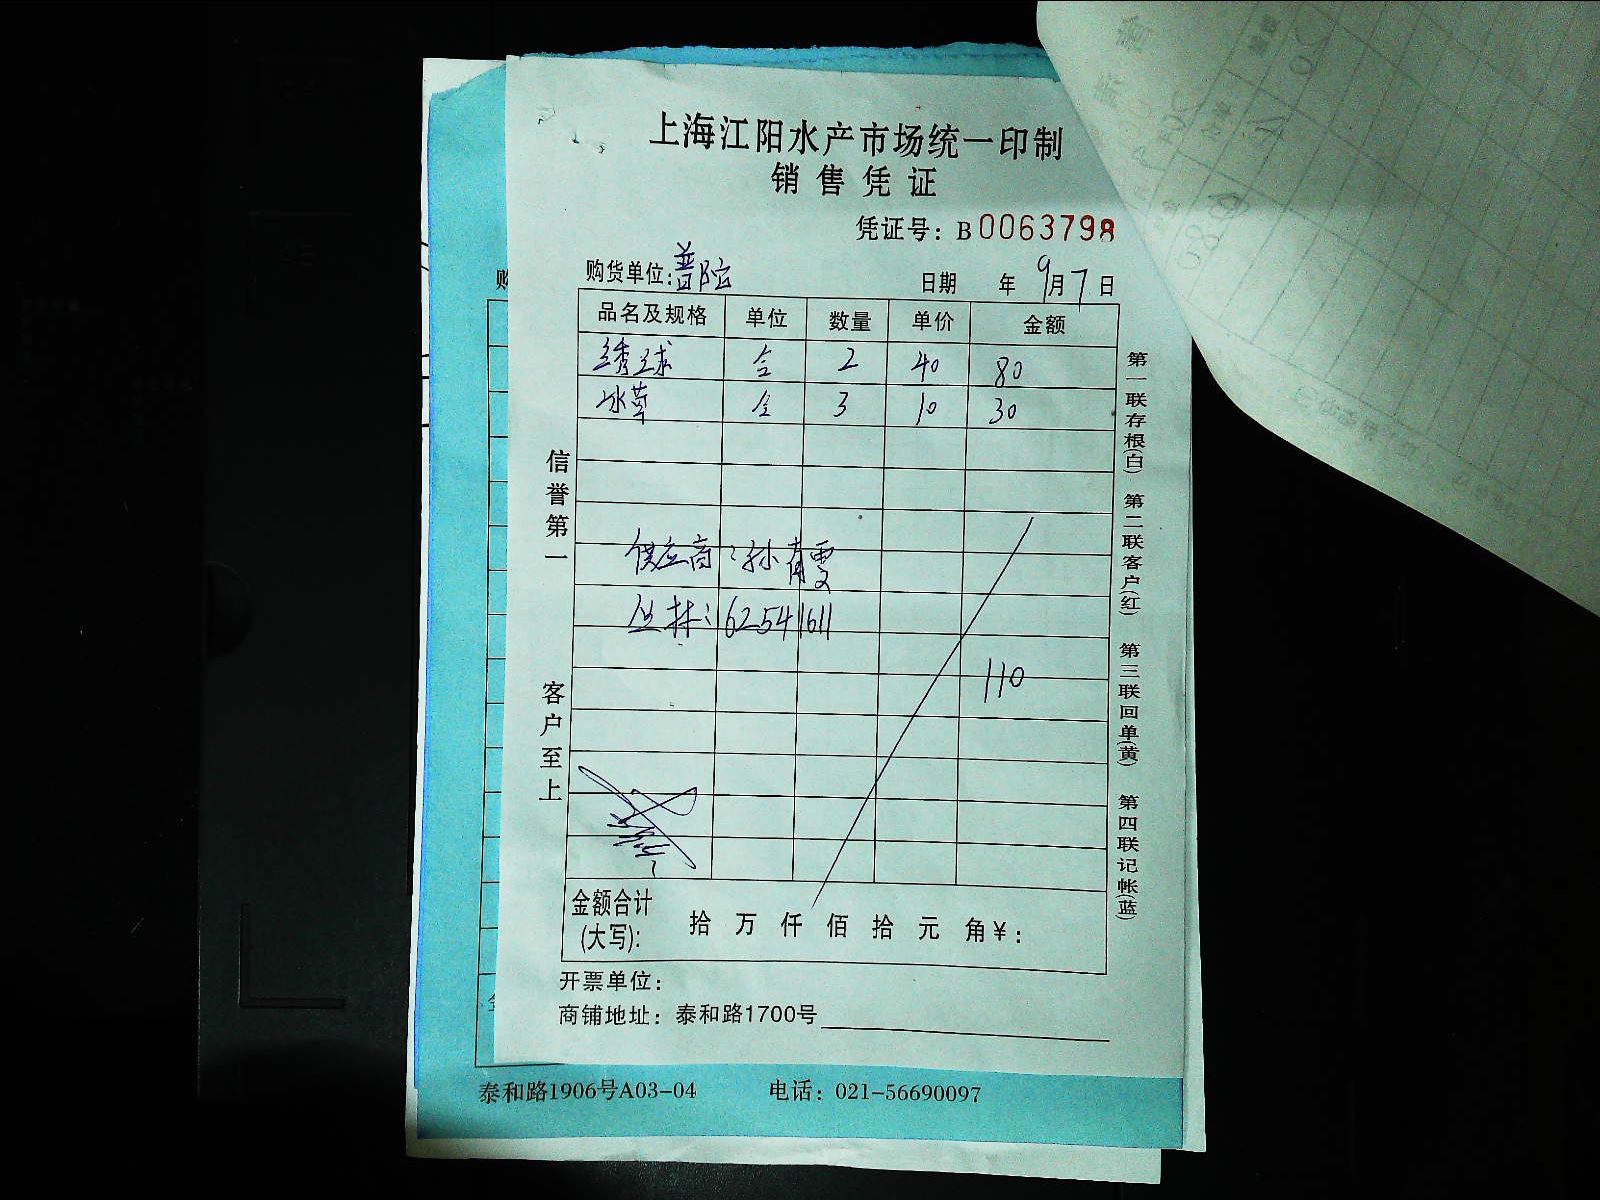 上海江阳水产市场统一印制
销售凭证
凭证号：B0063798
购货单位:普陀 日期 年 9月7日
品名及规格 单位 数量 单价 金额
绣球 合 2 40 80
冰草 合 3 10 30
供应商：孙青雯
丛林：62541611
110
金额合计(大写): 拾 万 仟 佰 拾 元 角￥：
开票单位：
商铺地址：泰和路1700号
信誉第一
客户至上
第一联存根(白) 第二联客户(红) 第三联回单(黄) 第四联记帐(蓝)
购
泰和路1906号A03-04 电话：021-56690097